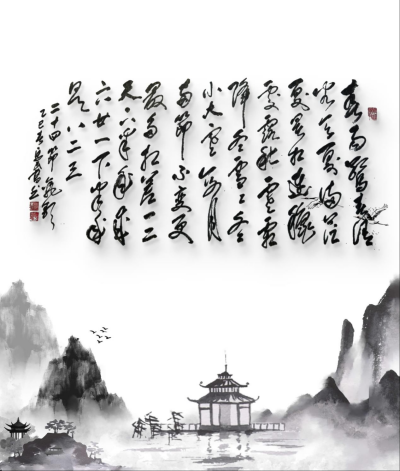 春雨驚春清
谷天夏滿芒
夏暑相連龝
處露秋寒霜
降冬雪雪冬
小大寒每月
两節不变更
最多相差一二
天上半年來
六廿一下半年
是八廿三
二十四節氣歌
乙巳